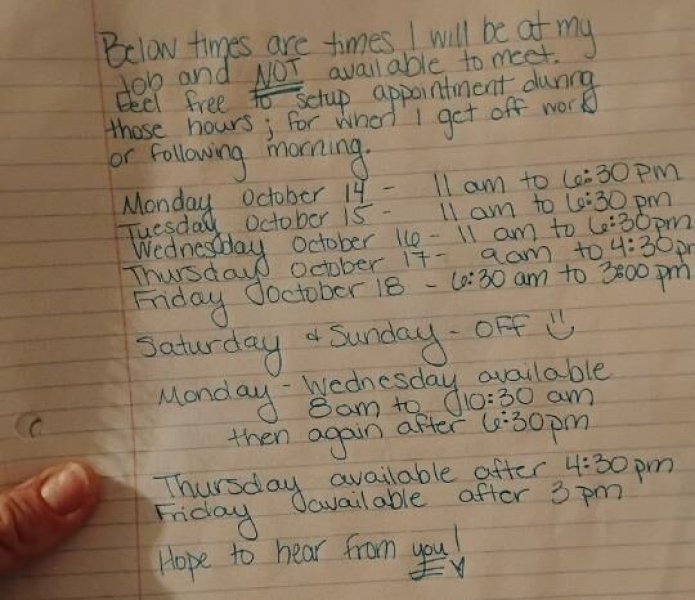 Below times are times I will be at my
Job and NOT available to meet.
feel free to setup appointment during
those hours; for when I get off work
or following morning.
Monday October 14 - 11 am to 6:30 pm
Tuesday October 15 - 11 am to 6:30 pm
Wednesday October 16 - 11 am to 6:30pm
Thursday October 17 - 9am to 4:30pm
Friday October 18 - 6:30 am to 3:00 pm
Saturday & Sunday - OFF
Monday - Wednesday available
8am to 10:30 am
then again after 6:30pm
Thursday available after 4:30pm
Friday available after 3pm
Hope to hear from you!